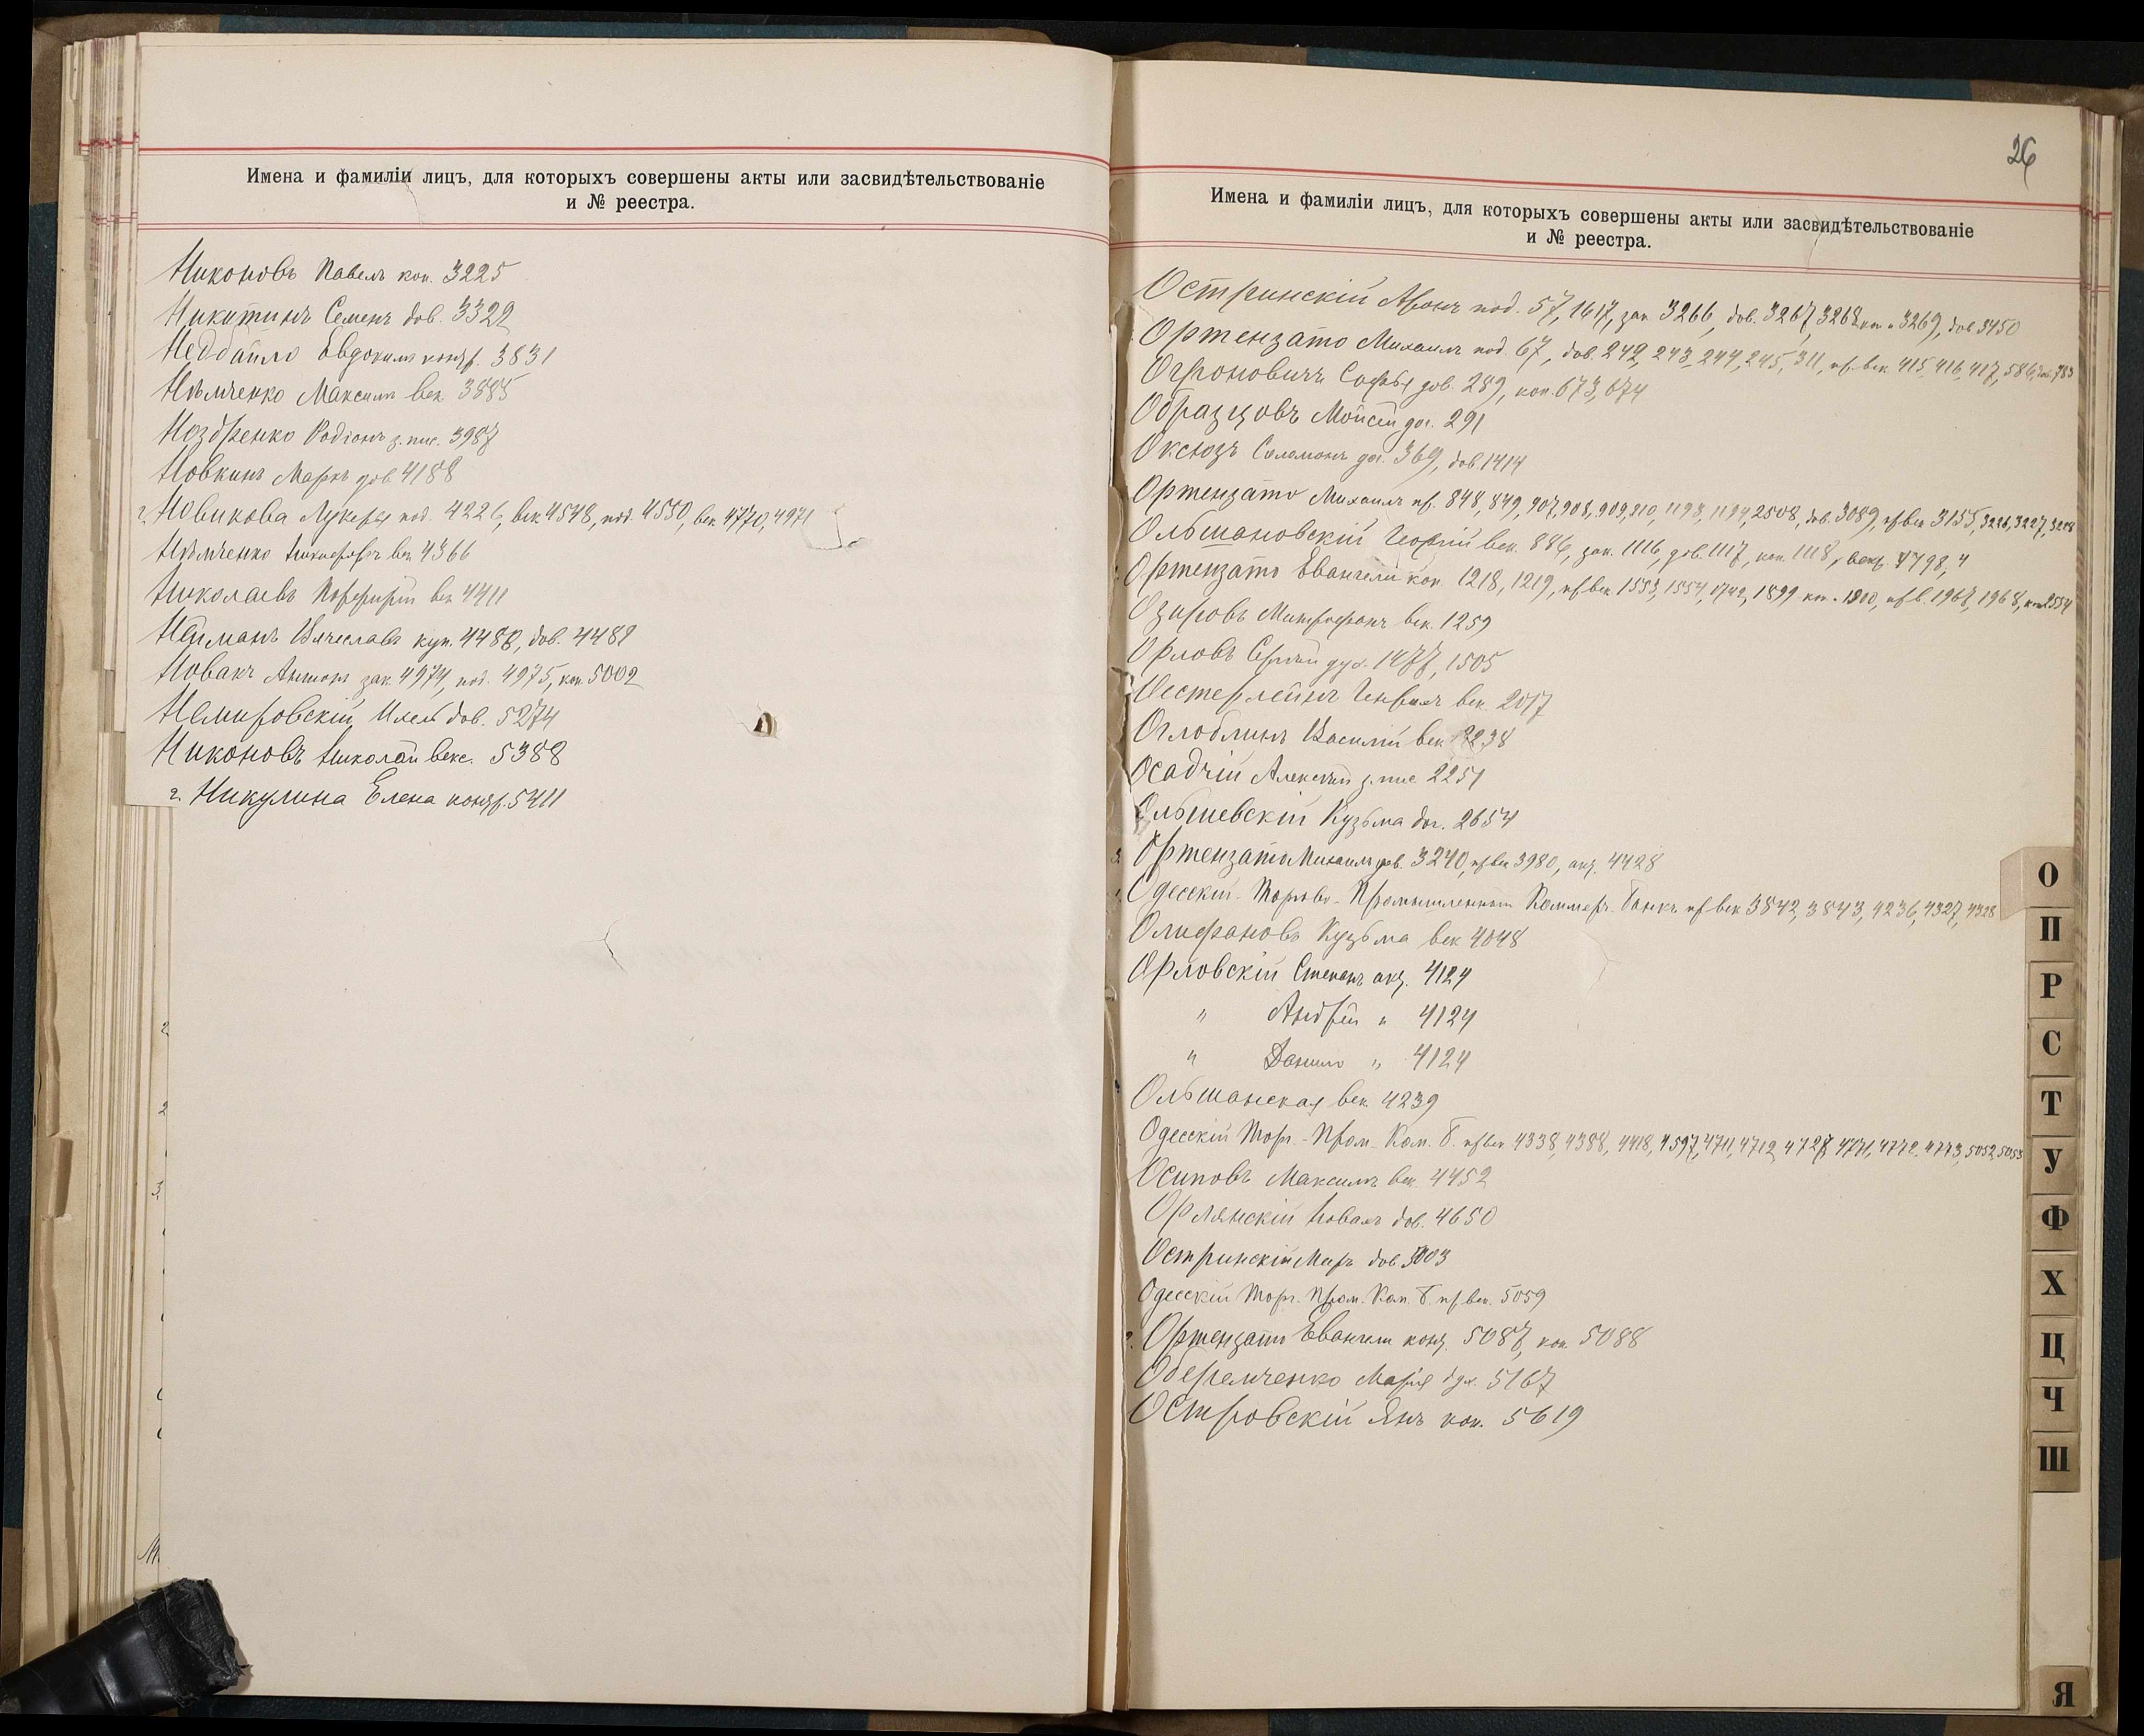 Имена и фамиліи лицъ, для которыхъ совершены акты или засвидѣтельствованіе
и № реестра.
Никоновъ Павелъ коп. 3225
Никитинъ Семенъ дов. 3322
Недбайло Евдокимъ контр. 3831
Нѣмченко Максимъ век. 3885
Ноздренко Родіонъ з. пис. 3987
Новкинъ Маркъ дов. 4188
2. Новикова Лукерья под. 4226, век. 4548, под. 4550, век. 4770, 4971
Нѣмченко Никифоръ век. 4366
Николаевъ Порфирій век. 4411
Нейманъ Вячеславъ куп. 4488, дов. 4489
Новакъ Антонъ зак. 4974, под. 4975, коп. 5002
Немировскій дов. 5274
Никоновъ Николай векс. 5388
2. Никулина Елена контр. 5411
26
Имена и фамиліи лицъ, для которыхъ совершены акты или засвидѣтельствованіе
и № реестра.
Остринскій Аронъ под. 57, 1617, зак. 3266, дов. 3267, 3268, коп. 3269, дов. 3450
Ортензато Михаилъ под. 67, дов. 242, 243, 244, 245, 311, пр. век. 415, 416, 417, 586, дов. 783
Огроновичъ Софья дов. 289, коп. 673, 674
Образцовъ Мойсей дог. 291
Оксюзъ Соломонъ дог. 369, дов. 1414
Ортензато Михаилъ пр. 848, 849, 907, 908, 909, 910, 1193, 1194, 2508, дов. 3089, пр. век. 3155, 3226, 3227, 3228
Ольшановскій Георгій век. 886, зак. 1116, дов. 1117, коп. 1118, 4798,
Ортензато Евангели коп. 1218, 1219, пр. век. 1553, 1554, 1742, 1899, 1967, 1968, 2554
Озировъ Митрофанъ век. 1259
Орловъ Сергѣй дух. 1477, 1505
Оестерлейнъ век. 2017
Оглоблинъ Василій век. 2238
Осадчій Алексѣй з. пис. 2251
Ольшевскій Кузьма дог. 2654
3. Ортензато Михаилъ дов. 3240, пр. век. 3980, акц. 4428
Одесскій Торгово-Промышленный Коммерч. Банкъ пр. век. 3842, 3843, 4236, 4327, 4328
Олифановъ Кузьма век. 4048
Орловскій Степанъ акц. 4124
" Андрей " 4124
" Данило " 4124
Ольшанская век. 4239
Одесскій Торг.-Пром. Ком. Б. пр. век. 4338, 4388, 4418, 4597, 4711, 4712, 4727, 4771, 4772, 4773, 5052, 5053
Осиповъ Максимъ век. 4452
Орлянскій дов. 4650
Остринскій Меръ дов. 5003
Одесскій Торг. Пром. Ком. Б. пр. век. 5059
2. Ортензато Евангели контр. 5087, коп. 5088
Оберемченко Марія дух. 5167
Островскій Янъ коп. 5619
О
П
Р
С
Т
У
Ф
Х
Ц
Ч
Ш
Я